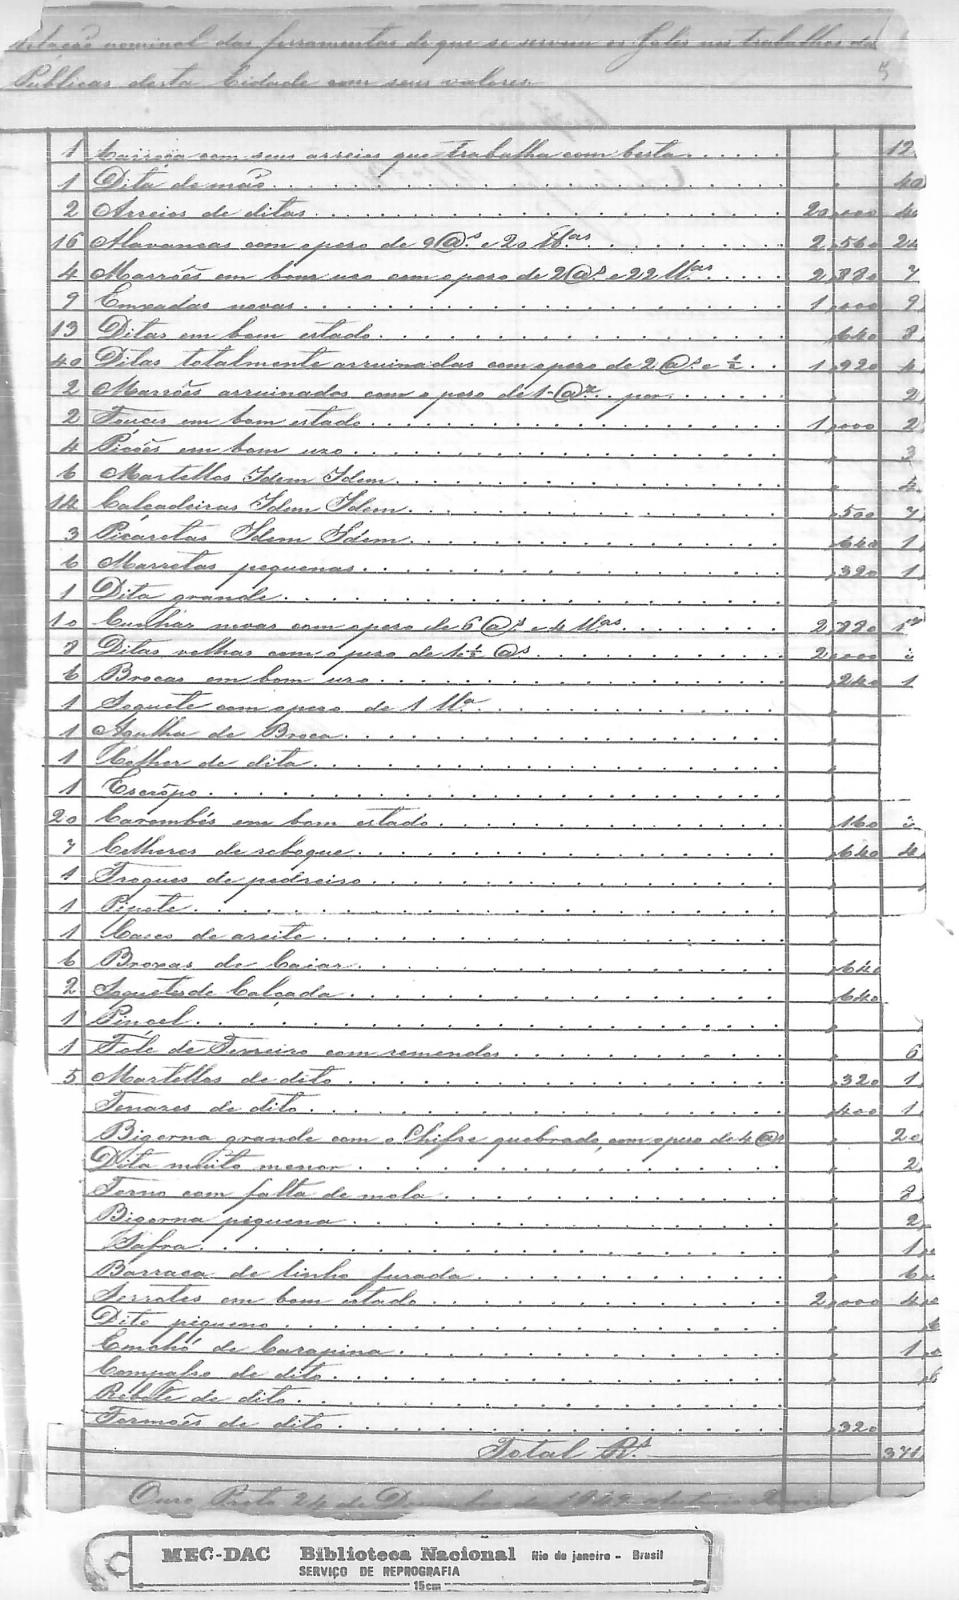 Relação nominal das ferramentas de que se servem os Galés nos trabalhos das
Publicas desta Cidade com seus valores.
5
1 Carroça com seus arreios que trabalha com besta 12
1 Dita de mão 40
2 Arreios de ditas 20,000 40
16 Alavancas com o pezo de 9@s e 20 lbas 2,560 24
4 Marrões em bom uzo com o pezo de 2@s e 22 llas 2,880 7
9 Enxadas novas 1,000 9
13 Ditas em bom estado ,640 8
40 Ditas totalmente arruinadas com o pezo de 2@s e ½ 1,920 4
2 Marrões arruinados com o pezo de 1@ por 2
2 Fouces em bom estado 1,000 2
4 Picões em bom uzo 3
6 Martellos Idem Idem 4
14 Calçadeiras Idem Idem ,500 7
3 Picaretas Idem Idem ,640 1
6 Marretas pequenas ,320 1
1 Dita grande
10 Cunhas novas com o pezo de 6@s e 4 llas 2,880
8 Ditas velhas com o pezo de 1½ @s 2,000
6 Brocas em bom uzo ,240 1
1 Soquete com o pezo de 1 lla
1 Agulha de Broca
1 Colher de dita
1 Escôpo
20 Carombés em bom estado ,160
7 Colheres de reboque ,640 4
1 Troques de pedreiro
1 Pixote
1 Caseo de aseite
6 Broxas de Caiar ,640
2 Soquetes de Calçada ,640
1 Pincel
1 Fole de Ferreiro com remendos 6
5 Martellos de dito ,320 1
Tenazes de dito ,400 1
Bigorna grande com o Chifre quebrado, com o pezo de 4@s 20
Dita muito menor 2
Torno com falta de mola 8
Bigorna piquena 2
Safra 1
Barraca de linho furada 6
Serrotes em bom estado 2,000 4
Dito piqueno
Enchó de Carapina 1
Compasso de dito
Rebote de dito
Formões de dito ,320
Total Rs 371
Ouro Preto 24 de Dezembro de 1849
MEC-DAC Biblioteca Nacional Rio de janeiro - Brasil
SERVIÇO DE REPROGRAFIA
15cm